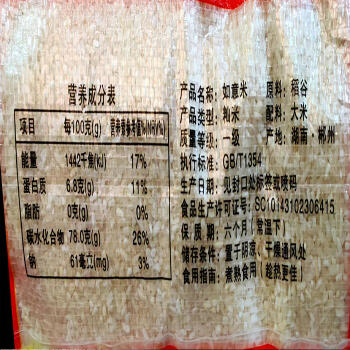 营养成分表
项目 每100克(g) 营养素参考值%(NRV%)
能量 1442千焦(kJ) 17%
蛋白质 6.8克(g) 11%
脂肪 0克(g) 0%
碳水化合物 78.0克(g) 26%
钠 61毫克(mg) 3%
产品名称：如意米 原料：稻谷
产品类型：籼米 配料：大米
质量等级：一级 产地：湖南·郴州
执行标准：GB/T1354
生产日期：见封口处标签或喷码
食品生产许可证号：SC10143102306415
保质期：六个月（常温下）
储存条件：置于阴凉、干燥通风处
食用指南：煮熟食用（趁热更佳）